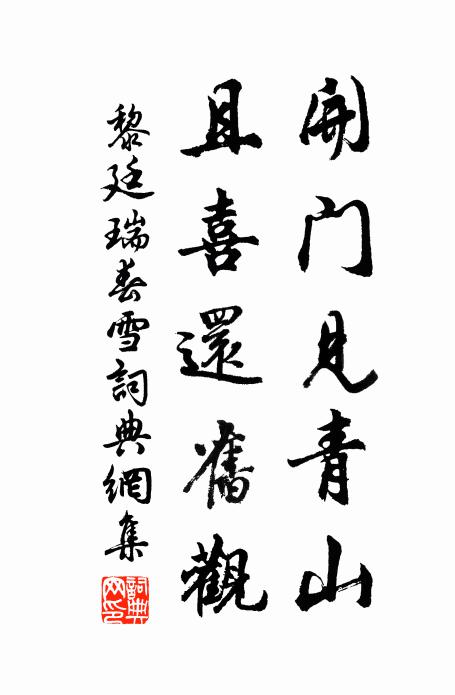 開门見青山
且喜還舊觀
黎廷瑞春雪詞典網集
詞典網印